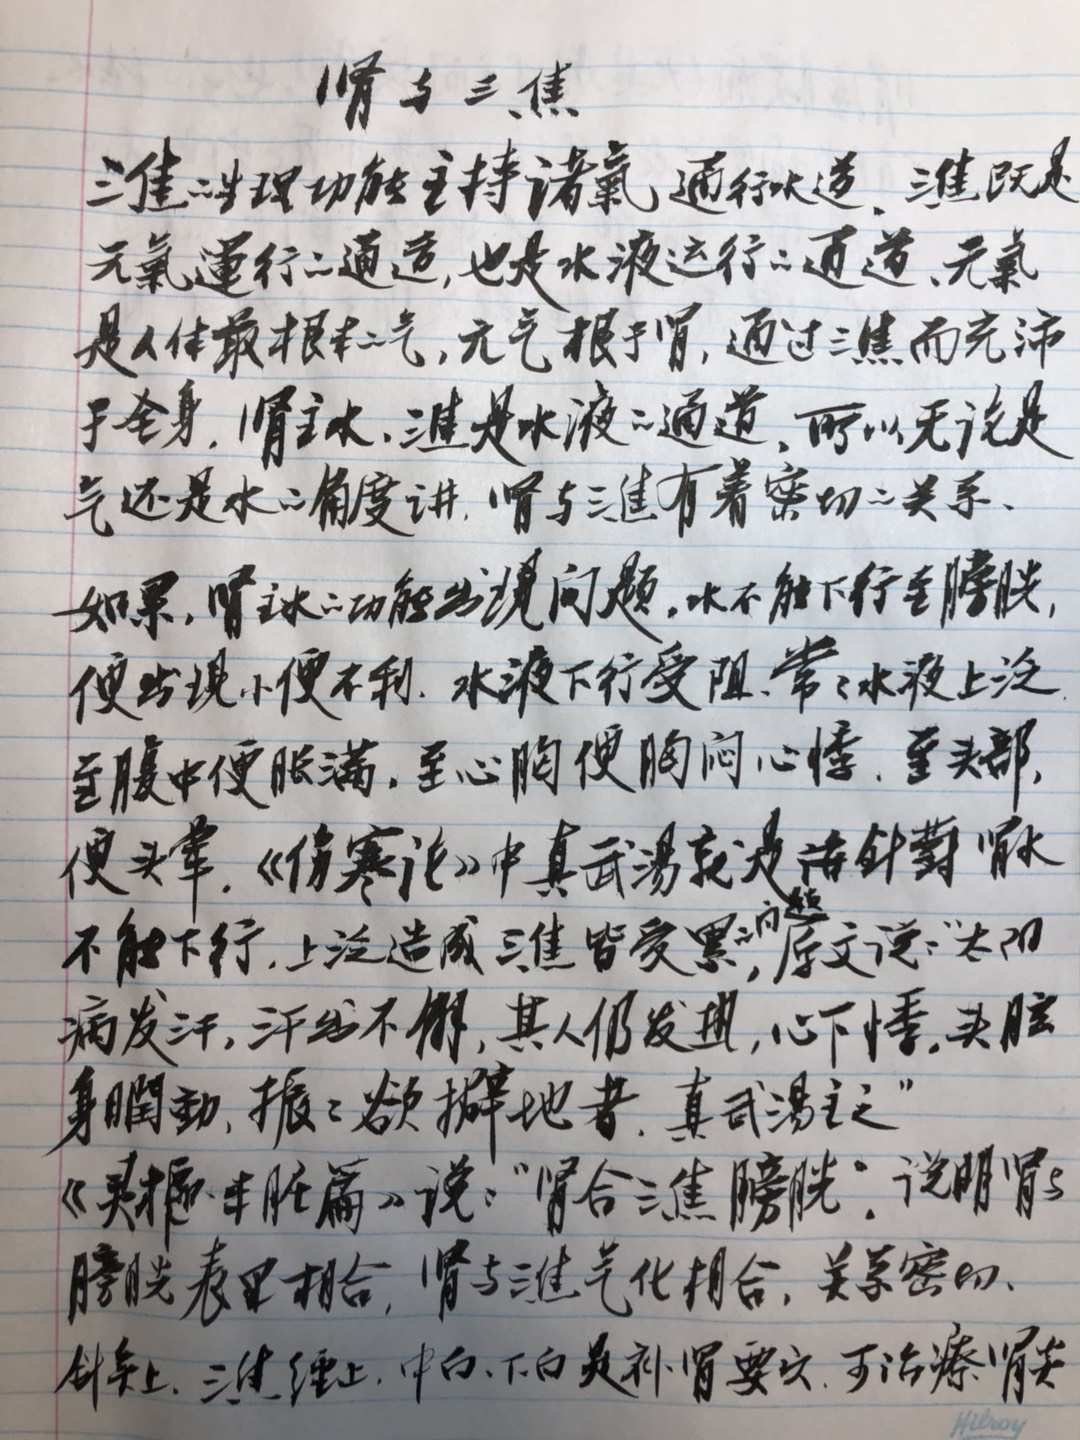 肾与三焦
三焦二生理功能主持诸氣 通行水道、三焦既是
元氣運行二通道,也是水液运行二通道、元氣
是人体最根本二气,元气根于肾,通过三焦而充沛
于全身.肾主水、三焦是水液二通道、所以无论是
气还是水二角度讲.肾与三焦有着密切二关系、
如果,肾主水二功能出现问题,水不能下行至膀胱,
便出现小便不利.水液下行受阻、常〻水液上泛.
至腹中便胀满,至心胸便胸闷心悸.至头部,
便头晕.《伤寒论》中真武湯就是 针對肾水
不能下行.上泛造成三焦皆受累二问题,原文说:“太阳
病发汗,汗出不解,其人仍发热,心下悸,头眩
身瞤動,振〻欲擗地者.真武湯主之”
《灵枢·本脏篇》说:“肾合三焦膀胱”.说明肾与
膀胱表里相合,肾与三焦气化相合,关系密切、
针灸上.三焦经上.中白、下白是补肾要穴.可治療肾炎
Hilroy